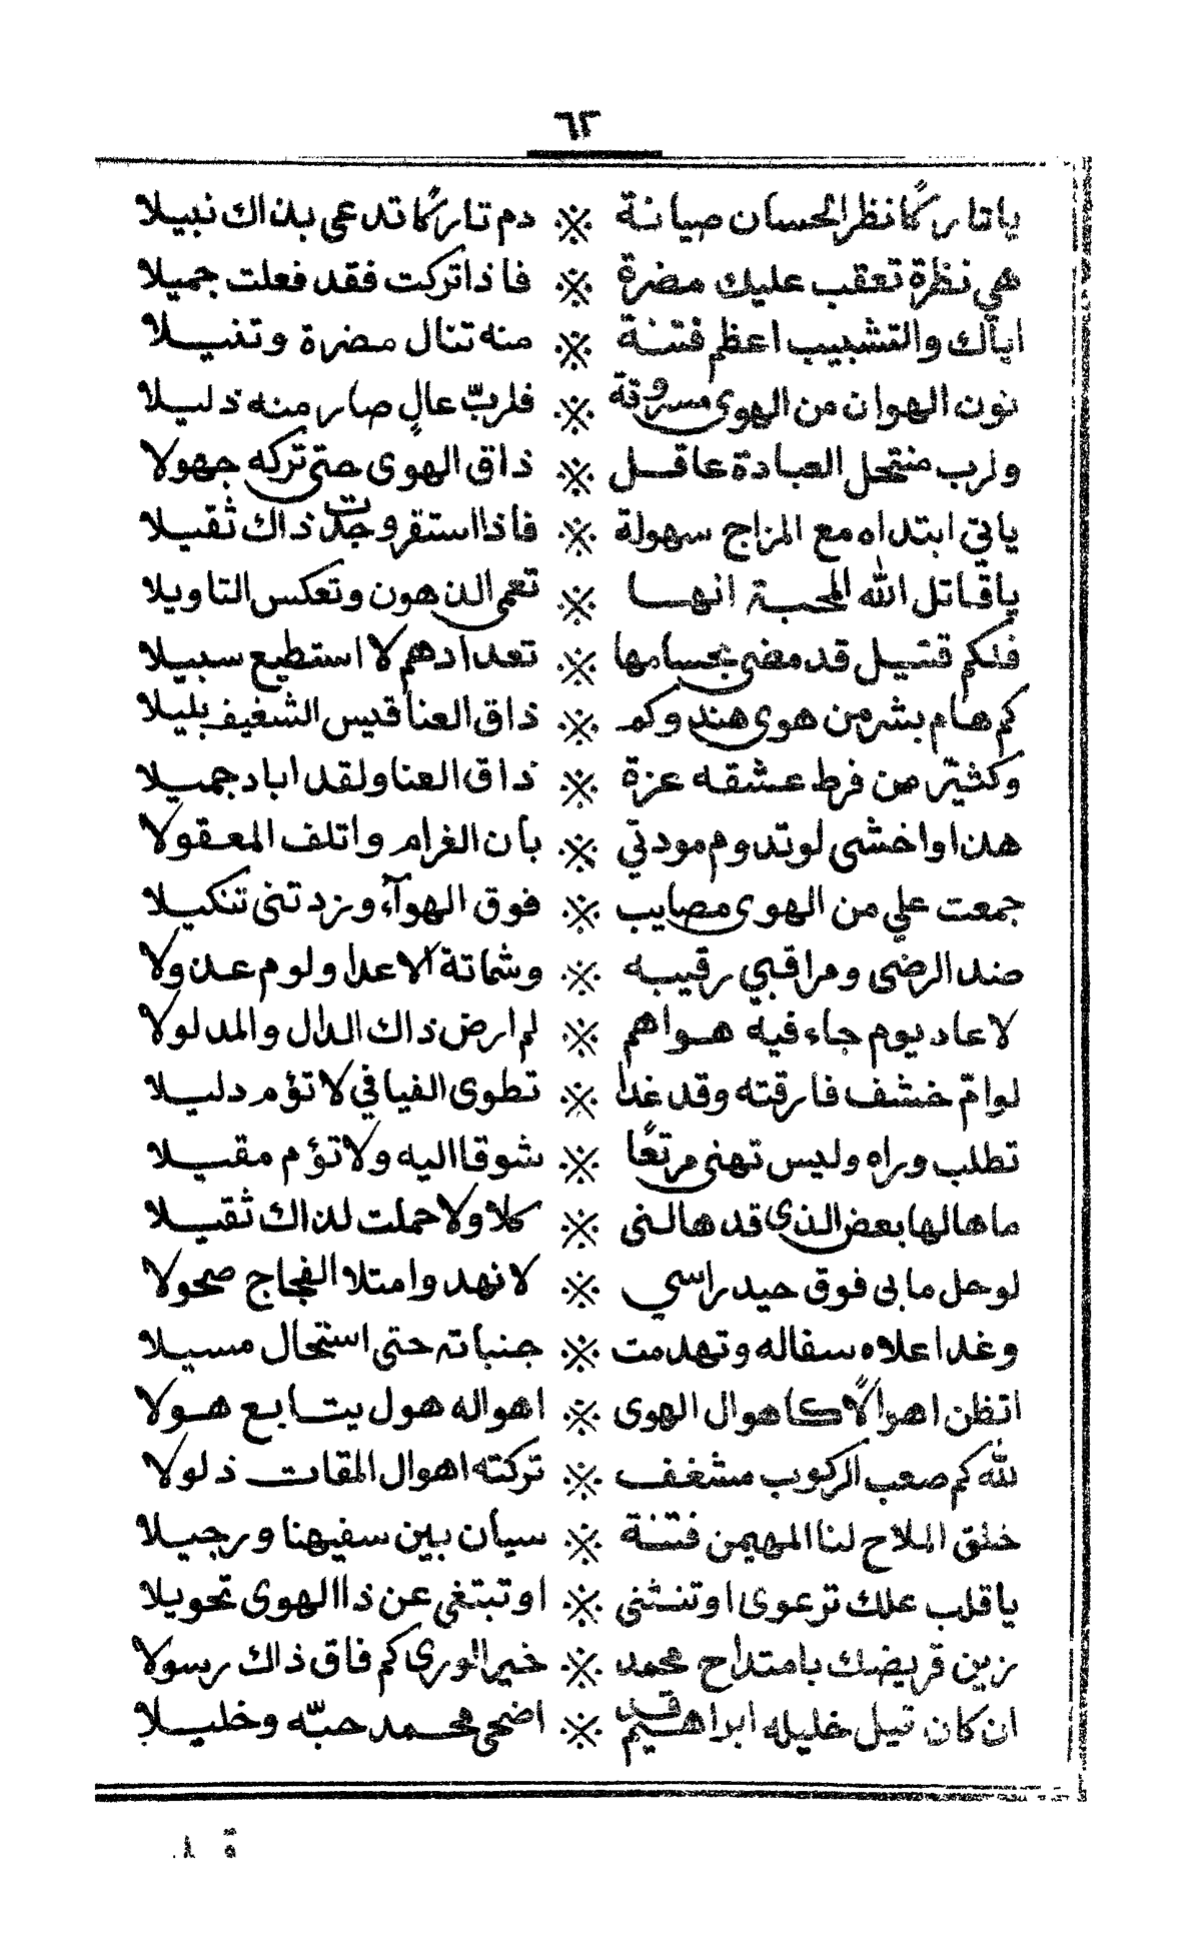 ٦٢
ياتاركًانظرالحسان صيانة ※ دم تاركًا تدعى بذاك نبيلا
هي نظرة تعقب عليك مضرة ※ فاذاتركت فقد فعلت جميلا
اياك والتشبيب اعظم فتنة ※ منه تنال مضرة وتنيلا
نون الهوان من الهوى مسروقة ※ فلربّ عالٍ صار منه ذليلا
ولرب منتحل العبادة عاقل ※ ذاق الهوى حتى تركه جهولا
ياتي ابتداه مع المزاج سهولة ※ فاذا استقر وجدت ذاك ثقيلا
ياقاتل الله المحبة انها ※ تعمى الذهون وتعكس التاويلا
فلكم قتيل قدمضى بحسامها ※ تعدادهم لا استطيع سبيلا
كم هام بشر من هوى هند وكم ※ ذاق العنا قيس الشغيف بليلا
وكثيّر من فرط عشقه عزة ※ ذاق العنا ولقد اباد جميلا
هذا واخشى لو تدوم مودتي ※ بان الغرام واتلف المعقولا
جمعت علي من الهوى مصايب ※ فوق الهوآء وزدتنى تنكيلا
ضد الرضى ومراقبي رقيبه ※ وشماتة الاعدا ولوم عذولا
لاعاد يوم جاء فيه هواهم ※ لم ارض ذاك الدال والمدلولا
لوامّ خشف فارقته وقد غدا ※ تطوى الفيافي لا تؤم دليلا
تطلب وراه وليس تهنى مرتعًا ※ شوقا اليه ولا تؤم مقيلا
ماهالها بعض الذي قد هالنى ※ كلا ولا حملت لذاك ثقيلا
لوحل مابى فوق حيد راسي ※ لانهد وامتلا الفجاج صحولا
وغدا اعلاه سفاله وتهدمت ※ جنباته حتى استحال مسيلا
اتظن اهوالًا كاهوال الهوى ※ اهواله هول يتابع هولا
لله كم صعب الركوب مشغف ※ تركته اهوال المقات ذلولا
خلق الملاح لنا المهيمن فتنة ※ سيان بين سفيهنا ورجيلا
ياقلب علك ترعوى اوتنثنى ※ اوتبتغي عن ذاالهوى تحويلا
زين قريضك بامتداح محمد ※ خيرالورى كم فاق ذاك رسولا
ان كان قيل خليله ابراهيم قد ※ اضحى محمد حبّه وخليلا